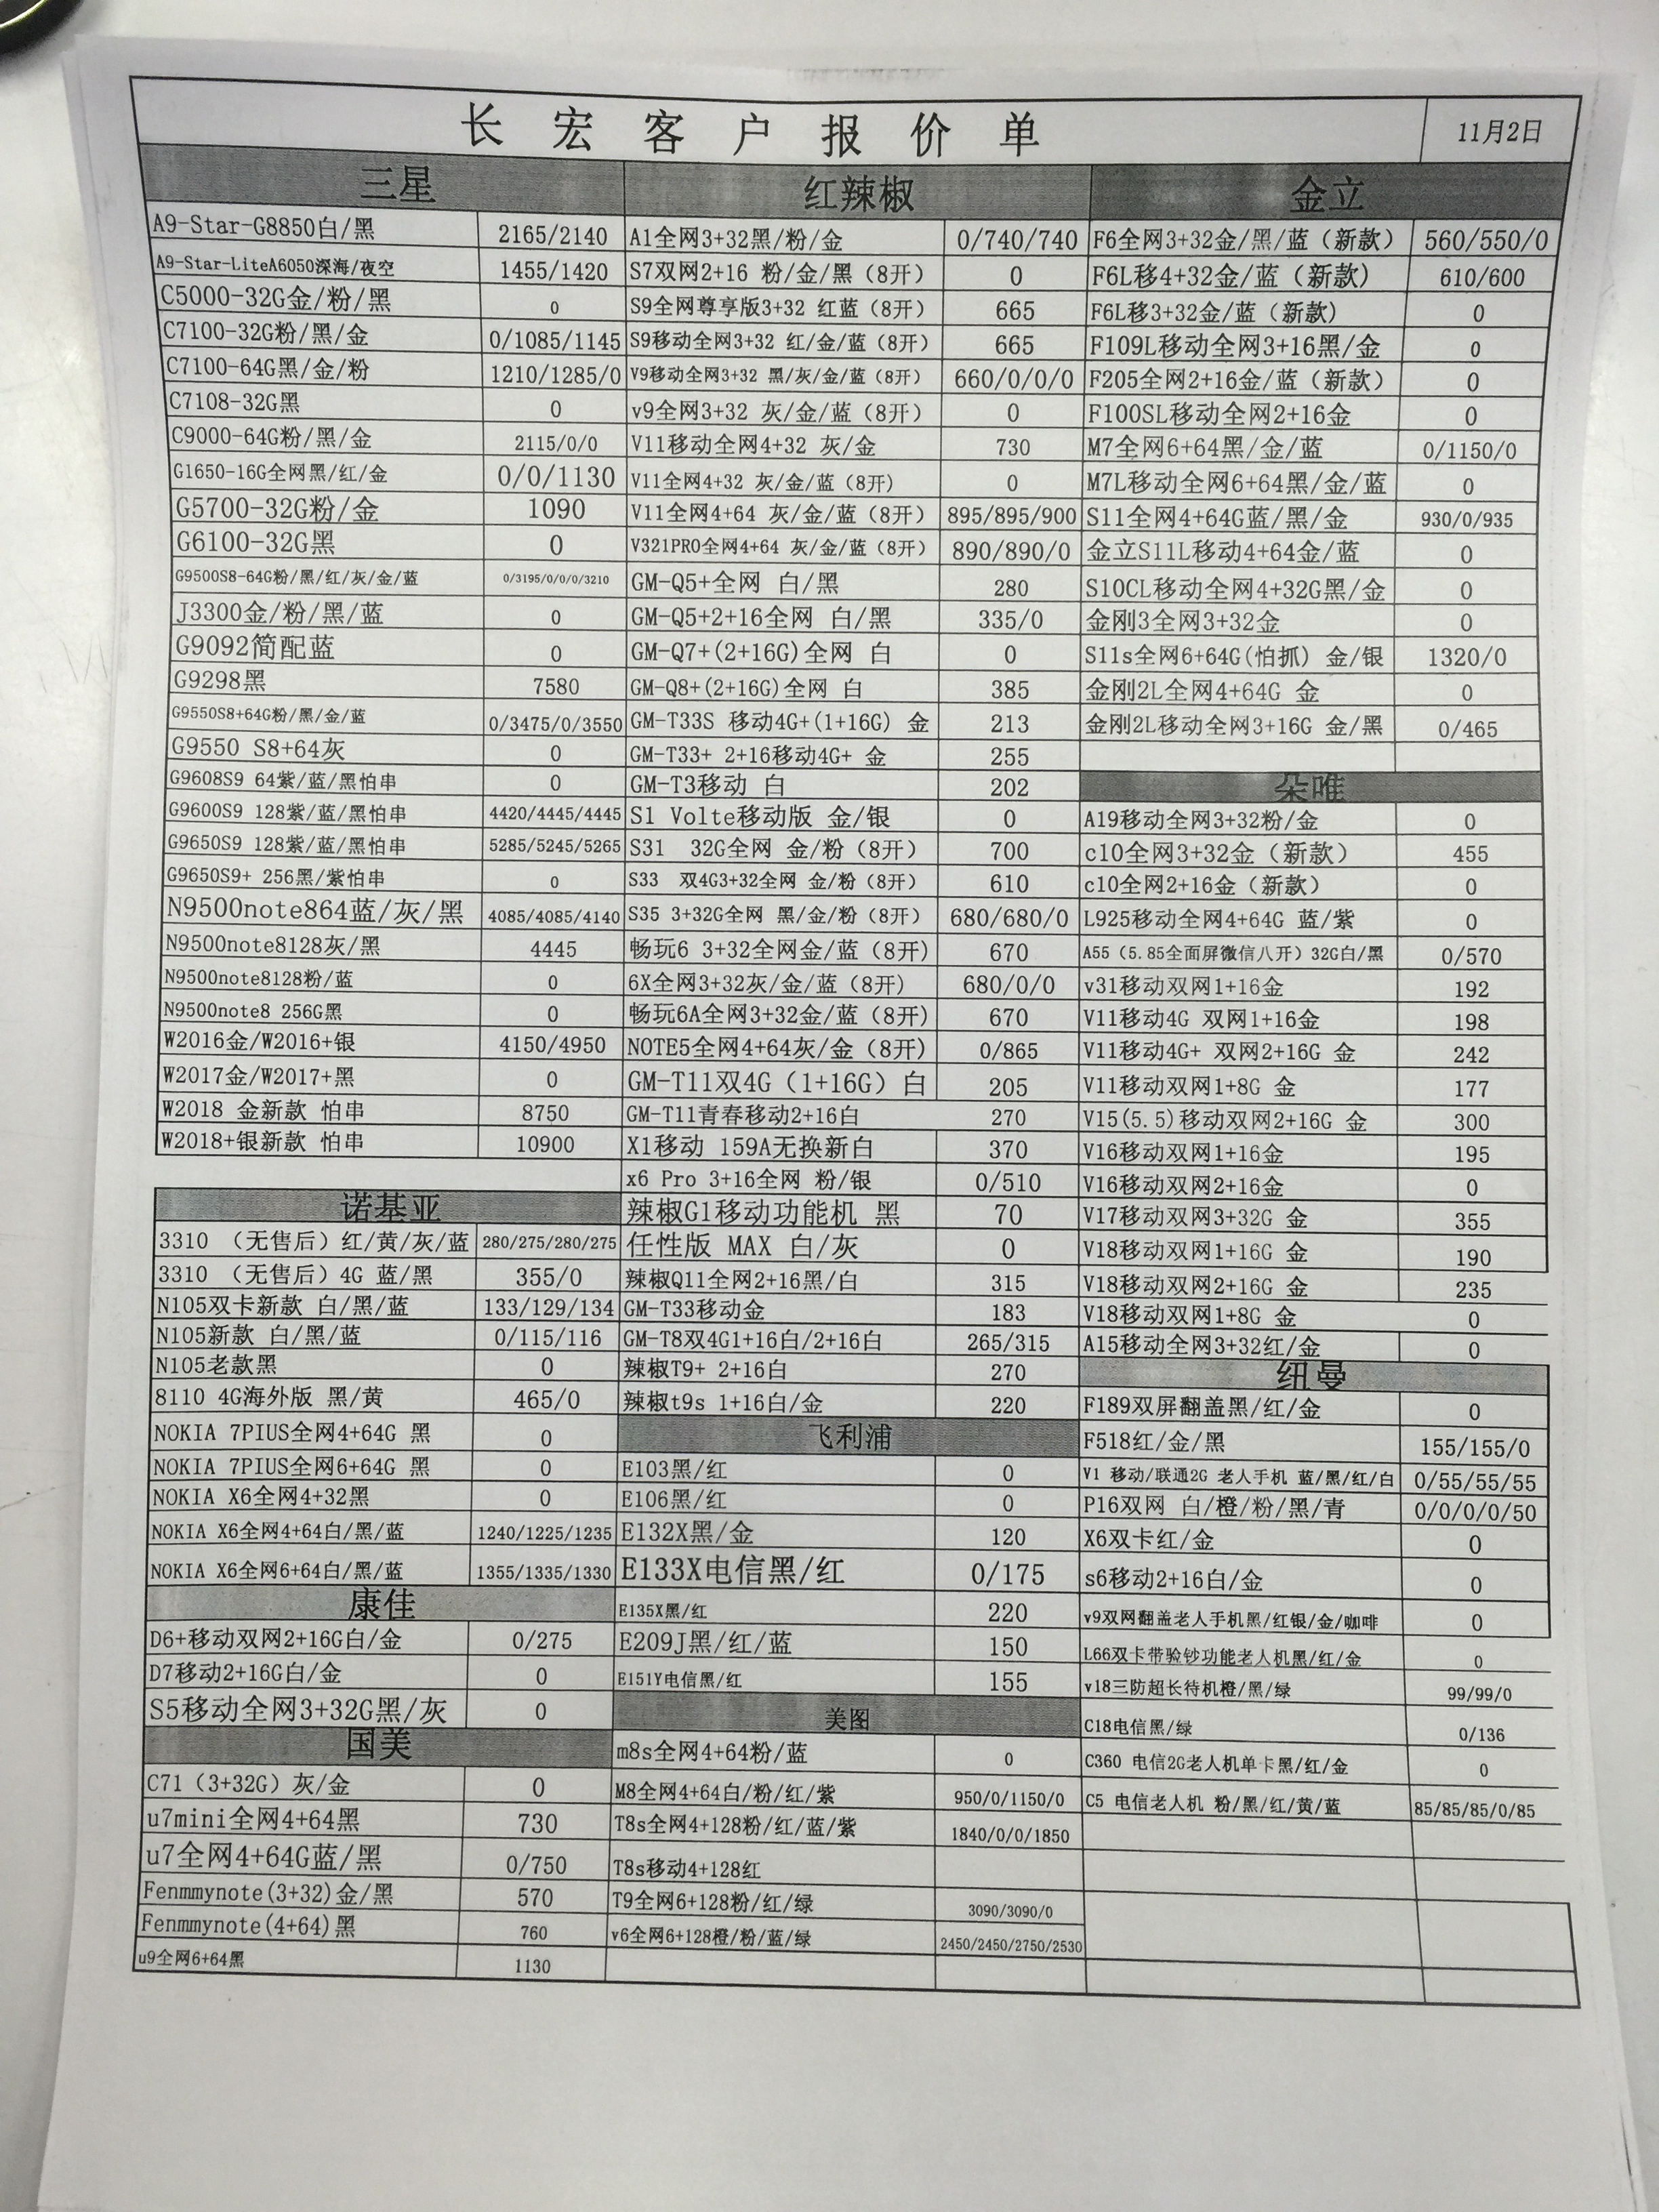 长宏客户报价单 11月2日
三星
A9-Star-G8850白/黑 2165/2140
A9-Star-LiteA6050深海/夜空 1455/1420
C5000-32G金/粉/黑 0
C7100-32G粉/黑/金 0/1085/1145
C7100-64G黑/金/粉 1210/1285/0
C7108-32G黑 0
C9000-64G粉/黑/金 2115/0/0
G1650-16G全网黑/红/金 0/0/1130
G5700-32G粉/金 1090
G6100-32G黑 0
G9500S8-64G粉/黑/红/灰/金/蓝 0/3195/0/0/0/3210
J3300金/粉/黑/蓝 0
G9092简配蓝 0
G9298黑 7580
G9550S8+64G粉/黑/金/蓝 0/3475/0/3550
G9550 S8+64灰 0
G9608S9 64紫/蓝/黑怕串 0
G9600S9 128紫/蓝/黑怕串 4420/4445/4445
G9650S9 128紫/蓝/黑怕串 5285/5245/5265
G9650S9+ 256黑/紫怕串 0
N9500note864蓝/灰/黑 4085/4085/4140
N9500note8128灰/黑 4445
N9500note8128粉/蓝 0
N9500note8 256G黑 0
W2016金/W2016+银 4150/4950
W2017金/W2017+黑 0
W2018 金新款 怕串 8750
W2018+银新款 怕串 10900
诺基亚
3310 （无售后）红/黄/灰/蓝 280/275/280/275
3310 （无售后）4G 蓝/黑 355/0
N105双卡新款 白/黑/蓝 133/129/134
N105新款 白/黑/蓝 0/115/116
N105老款黑 0
8110 4G海外版 黑/黄 465/0
NOKIA 7PIUS全网4+64G 黑 0
NOKIA 7PIUS全网6+64G 黑 0
NOKIA X6全网4+32黑 0
NOKIA X6全网4+64白/黑/蓝 1240/1225/1235
NOKIA X6全网6+64白/黑/蓝 1355/1335/1330
康佳
D6+移动双网2+16G白/金 0/275
D7移动2+16G白/金 0
S5移动全网3+32G黑/灰 0
国美
C71（3+32G）灰/金 0
u7mini全网4+64黑 730
u7全网4+64G蓝/黑 0/750
Fenmmynote(3+32)金/黑 570
Fenmmynote(4+64)黑 760
u9全网6+64黑 1130
红辣椒
A1全网3+32黑/粉/金 0/740/740
S7双网2+16 粉/金/黑（8开） 0
S9全网尊享版3+32 红蓝（8开） 665
S9移动全网3+32 红/金/蓝（8开） 665
V9移动全网3+32 黑/灰/金/蓝（8开） 660/0/0/0
v9全网3+32 灰/金/蓝（8开） 0
V11移动全网4+32 灰/金 730
V11全网4+32 灰/金/蓝（8开） 0
V11全网4+64 灰/金/蓝（8开） 895/895/900
V321PRO全网4+64 灰/金/蓝（8开） 890/890/0
GM-Q5+全网 白/黑 280
GM-Q5+2+16全网 白/黑 335/0
GM-Q7+(2+16G)全网 白 0
GM-Q8+(2+16G)全网 白 385
GM-T33S 移动4G+(1+16G) 金 213
GM-T33+ 2+16移动4G+ 金 255
GM-T3移动 白 202
S1 Volte移动版 金/银 0
S31 32G全网 金/粉（8开） 700
S33 双4G3+32全网 金/粉（8开） 610
S35 3+32G全网 黑/金/粉（8开） 680/680/0
畅玩6 3+32全网金/蓝（8开） 670
6X全网3+32灰/金/蓝（8开） 680/0/0
畅玩6A全网3+32金/蓝（8开） 670
NOTE5全网4+64灰/金（8开） 0/865
GM-T11双4G（1+16G）白 205
GM-T11青春移动2+16白 270
X1移动 159A无换新白 370
x6 Pro 3+16全网 粉/银 0/510
辣椒G1移动功能机 黑 70
任性版 MAX 白/灰 0
辣椒Q11全网2+16黑/白 315
GM-T33移动金 183
GM-T8双4G1+16白/2+16白 265/315
辣椒T9+ 2+16白 270
辣椒t9s 1+16白/金 220
飞利浦
E103黑/红 0
E106黑/红 0
E132X黑/金 120
E133X电信黑/红 0/175
E135X黑/红 220
E209J黑/红/蓝 150
E151Y电信黑/红 155
美图
m8s全网4+64粉/蓝 0
M8全网4+64白/粉/红/紫 950/0/1150/0
T8s全网4+128粉/红/蓝/紫 1840/0/0/1850
T8s移动4+128红
T9全网6+128粉/红/绿 3090/3090/0
v6全网6+128橙/粉/蓝/绿 2450/2450/2750/2530
金立
F6全网3+32金/黑/蓝（新款） 560/550/0
F6L移4+32金/蓝（新款） 610/600
F6L移3+32金/蓝（新款） 0
F109L移动全网3+16黑/金 0
F205全网2+16金/蓝（新款） 0
F100SL移动全网2+16金 0
M7全网6+64黑/金/蓝 0/1150/0
M7L移动全网6+64黑/金/蓝 0
S11全网4+64G蓝/黑/金 930/0/935
金立S11L移动4+64金/蓝 0
S10CL移动全网4+32G黑/金 0
金刚3全网3+32金 0
S11s全网6+64G(怕抓) 金/银 1320/0
金刚2L全网4+64G 金 0
金刚2L移动全网3+16G 金/黑 0/465
朵唯
A19移动全网3+32粉/金 0
c10全网3+32金（新款） 455
c10全网2+16金（新款） 0
L925移动全网4+64G 蓝/紫 0
A55（5.85全面屏微信八开）32G白/黑 0/570
v31移动双网1+16金 192
V11移动4G 双网1+16金 198
V11移动4G+ 双网2+16G 金 242
V11移动双网1+8G 金 177
V15(5.5)移动双网2+16G 金 300
V16移动双网1+16金 195
V16移动双网2+16金 0
V17移动双网3+32G 金 355
V18移动双网1+16G 金 190
V18移动双网2+16G 金 235
V18移动双网1+8G 金 0
A15移动全网3+32红/金 0
纽曼
F189双屏翻盖黑/红/金 0
F518红/金/黑 155/155/0
V1 移动/联通2G 老人手机 蓝/黑/红/白 0/55/55/55
P16双网 白/橙/粉/黑/青 0/0/0/0/50
X6双卡红/金 0
s6移动2+16白/金 0
v9双网翻盖老人手机黑/红银/金/咖啡 0
L66双卡带验钞功能老人机黑/红/金 0
v18三防超长待机橙/黑/绿 99/99/0
C18电信黑/绿 0/136
C360 电信2G老人机单卡黑/红/金 0
C5 电信老人机 粉/黑/红/黄/蓝 85/85/85/0/85